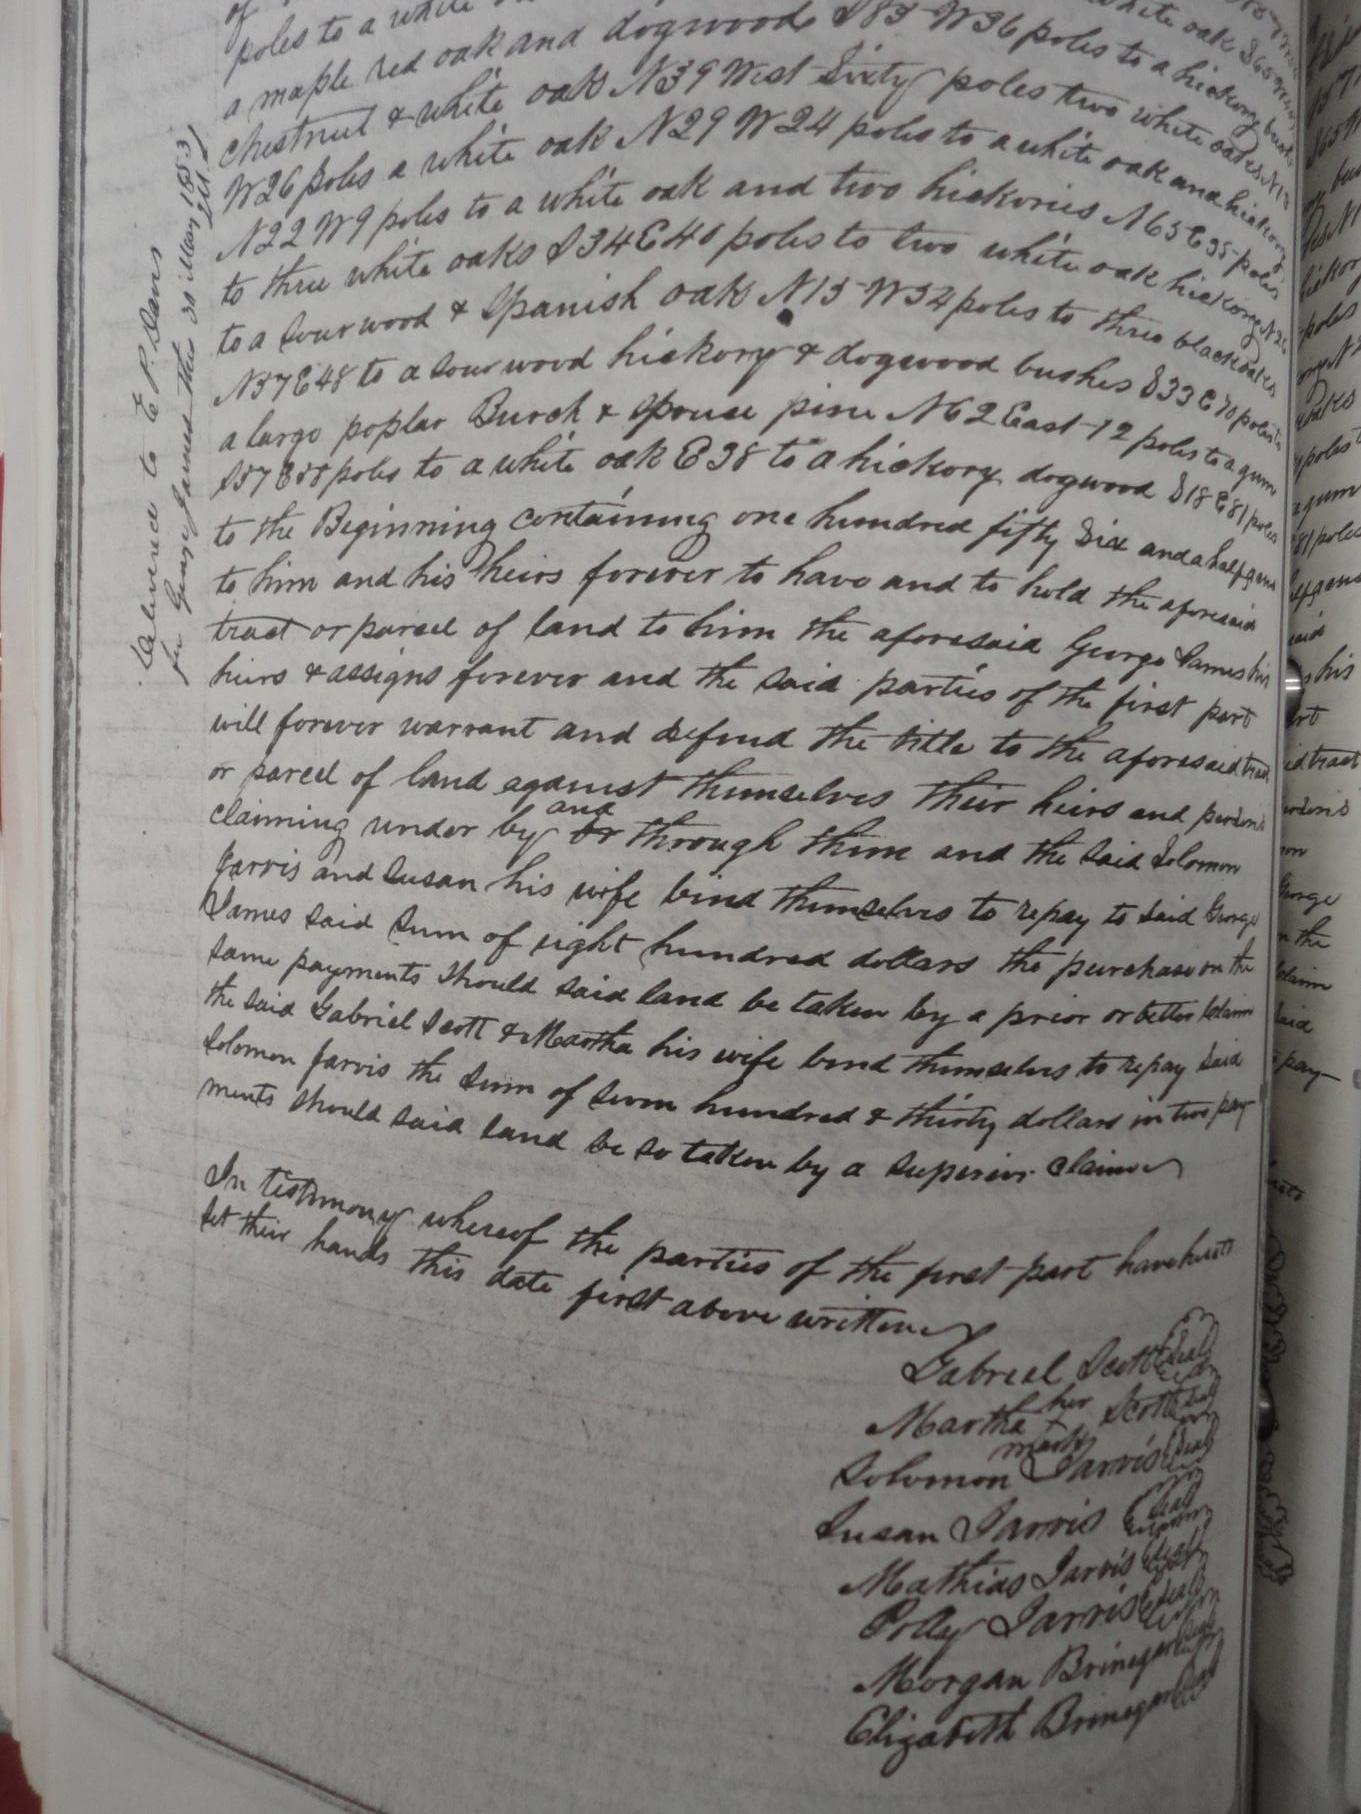 poles to a white
a maple red oak and dogwood S 83 W 36 poles to a hickory bush
chestnut & white oak N 39 West Sixty poles two white oakes N 13
W 26 poles a white oak N 29 W 24 poles to a white oak and hickory
N 22 W 9 poles to a white oak and two hickories N 65 E 35 poles
to three white oaks S 34 E 40 poles to two white oak hickory N 26
to a Sourwood & Spanish oak N 15 W 34 poles to three black oakes
N 57 E 48 to a Sourwood hickory & dogwood bushes S 33 E 70 poles to
a large poplar Burch & Spruce pine N 62 East 12 poles to a gum
S 57 E 58 poles to a white oak E 38 to a hickory dogwood S 18 E 81 poles
to the Beginning containing one hundred fifty Six and a half
to him and his heirs forever to have and to hold the aforesaid
tract or parcel of land to him the aforesaid George James his
heirs & assigns forever and the said parties of the first part
will forever warrant and defend the title to the aforesaid tract
or parcel of land against themselves their heirs and persons
claiming under by and or through them and the said Solomon
Jarvis and Susan his wife bind themselves to repay to said George
James said Sum of eight hundred dollars the purchase on the
same payments should said land be taken by a prior or better claim
the said Gabriel Scott & Martha his wife bind themselves to repay said
Solomon Jarvis the Sum of Seven hundred & thirty dollars in two pay
ments should said land be so taken by a superior claim
In testimony whereof the parties of the first part have hereto
set their hands this date first above written
Gabriel Scott Seal
her
Martha X Scott Seal
mark
Solomon Jarvis Seal
Susan Jarvis Seal
Mathias Jarvis Seal
Polly Jarvis Seal
Morgan Brinegar Seal
Elizabeth Brinegar Seal
Delivered to E P. Davis
for George James this 30 May 1853